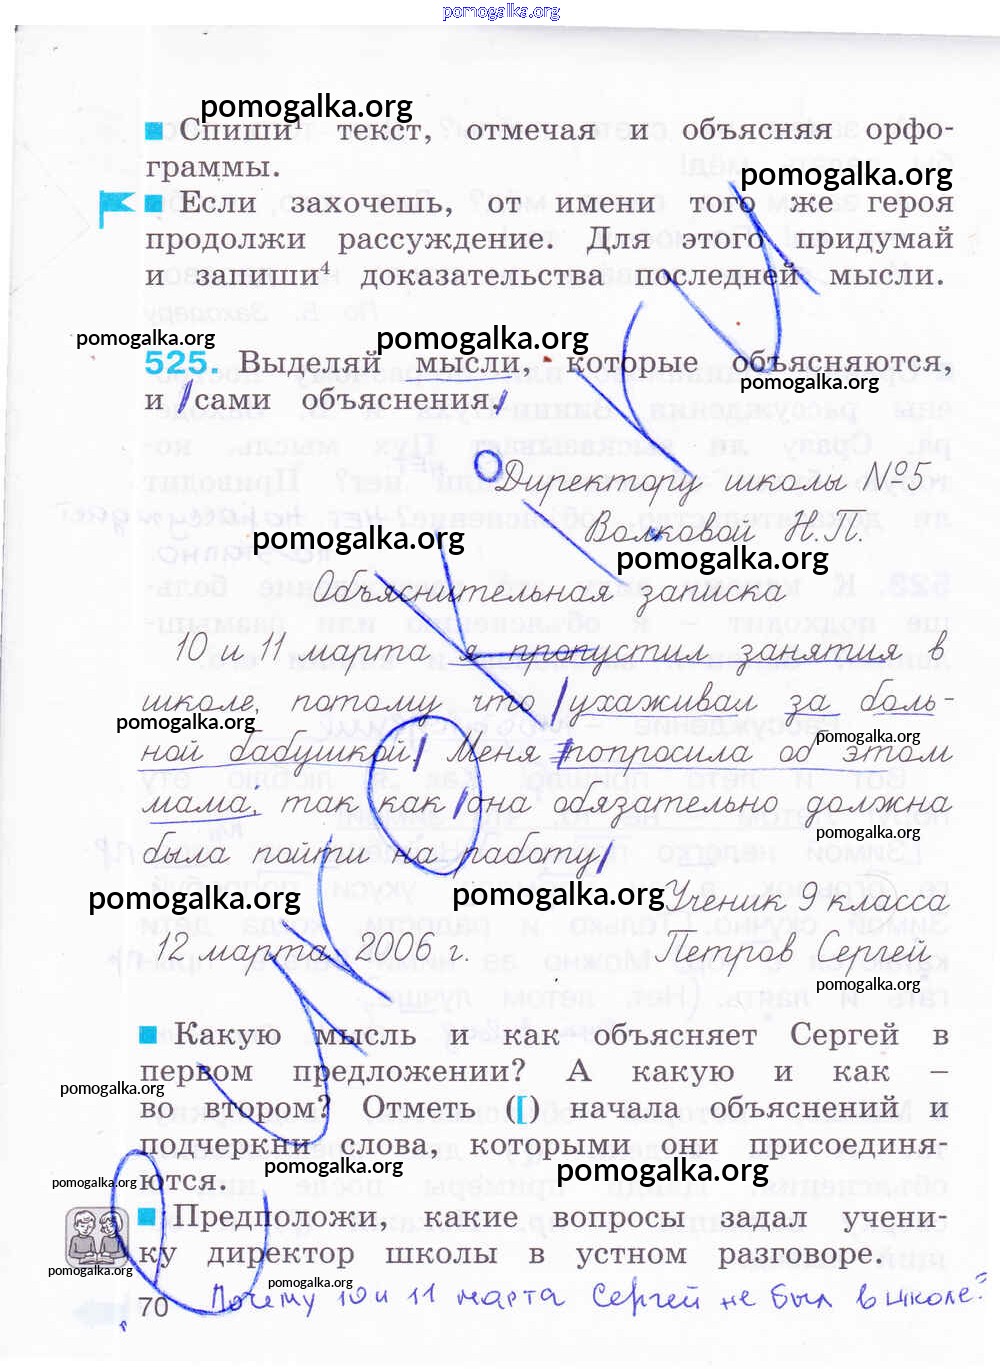 pomogalka.org
pomogalka.org
Спиши¹ текст, отмечая и объясняя орфо-
граммы.
pomogalka.org
Если захочешь, от имени того же героя
продолжи рассуждение. Для этого придумай
и запиши⁴ доказательства последней мысли.
pomogalka.org
pomogalka.org
525. Выделяй мысли, которые объясняются,
pomogalka.org
и сами объяснения.
Директору школы №5
Волковой Н.П.
pomogalka.org
pomogalka.org
Объяснительная записка
10 и 11 марта я пропустил занятия в
школе, потому что ухаживал за боль-
pomogalka.org
pomogalka.org
ной бабушкой. Меня попросила об этом
мама, так как она обязательно должна
pomogalka.org
была пойти на работу.
pomogalka.org
pomogalka.org
Ученик 9 класса
12 марта 2006 г. Петров Сергей
pomogalka.org
Какую мысль и как объясняет Сергей в
первом предложении? А какую и как –
pomogalka.org
во втором? Отметь ([) начала объяснений и
подчеркни слова, которыми они присоединя-
pomogalka.org
pomogalka.org
ются.
pomogalka.org
Предположи, какие вопросы задал учени-
ку директор школы в устном разговоре.
pomogalka.org
pomogalka.org
70 Почему 10 и 11 марта Сергей не был в школе?